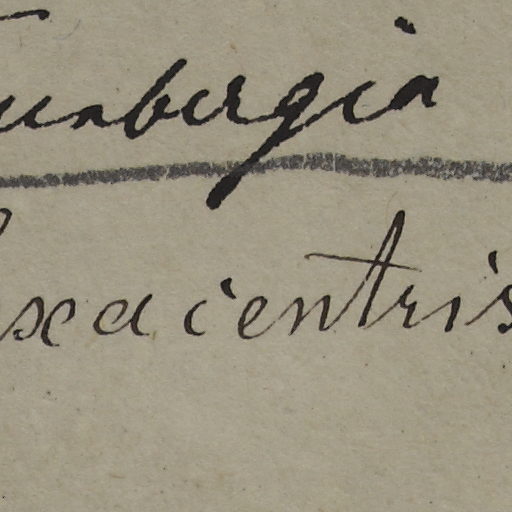 unbergia
xacentris